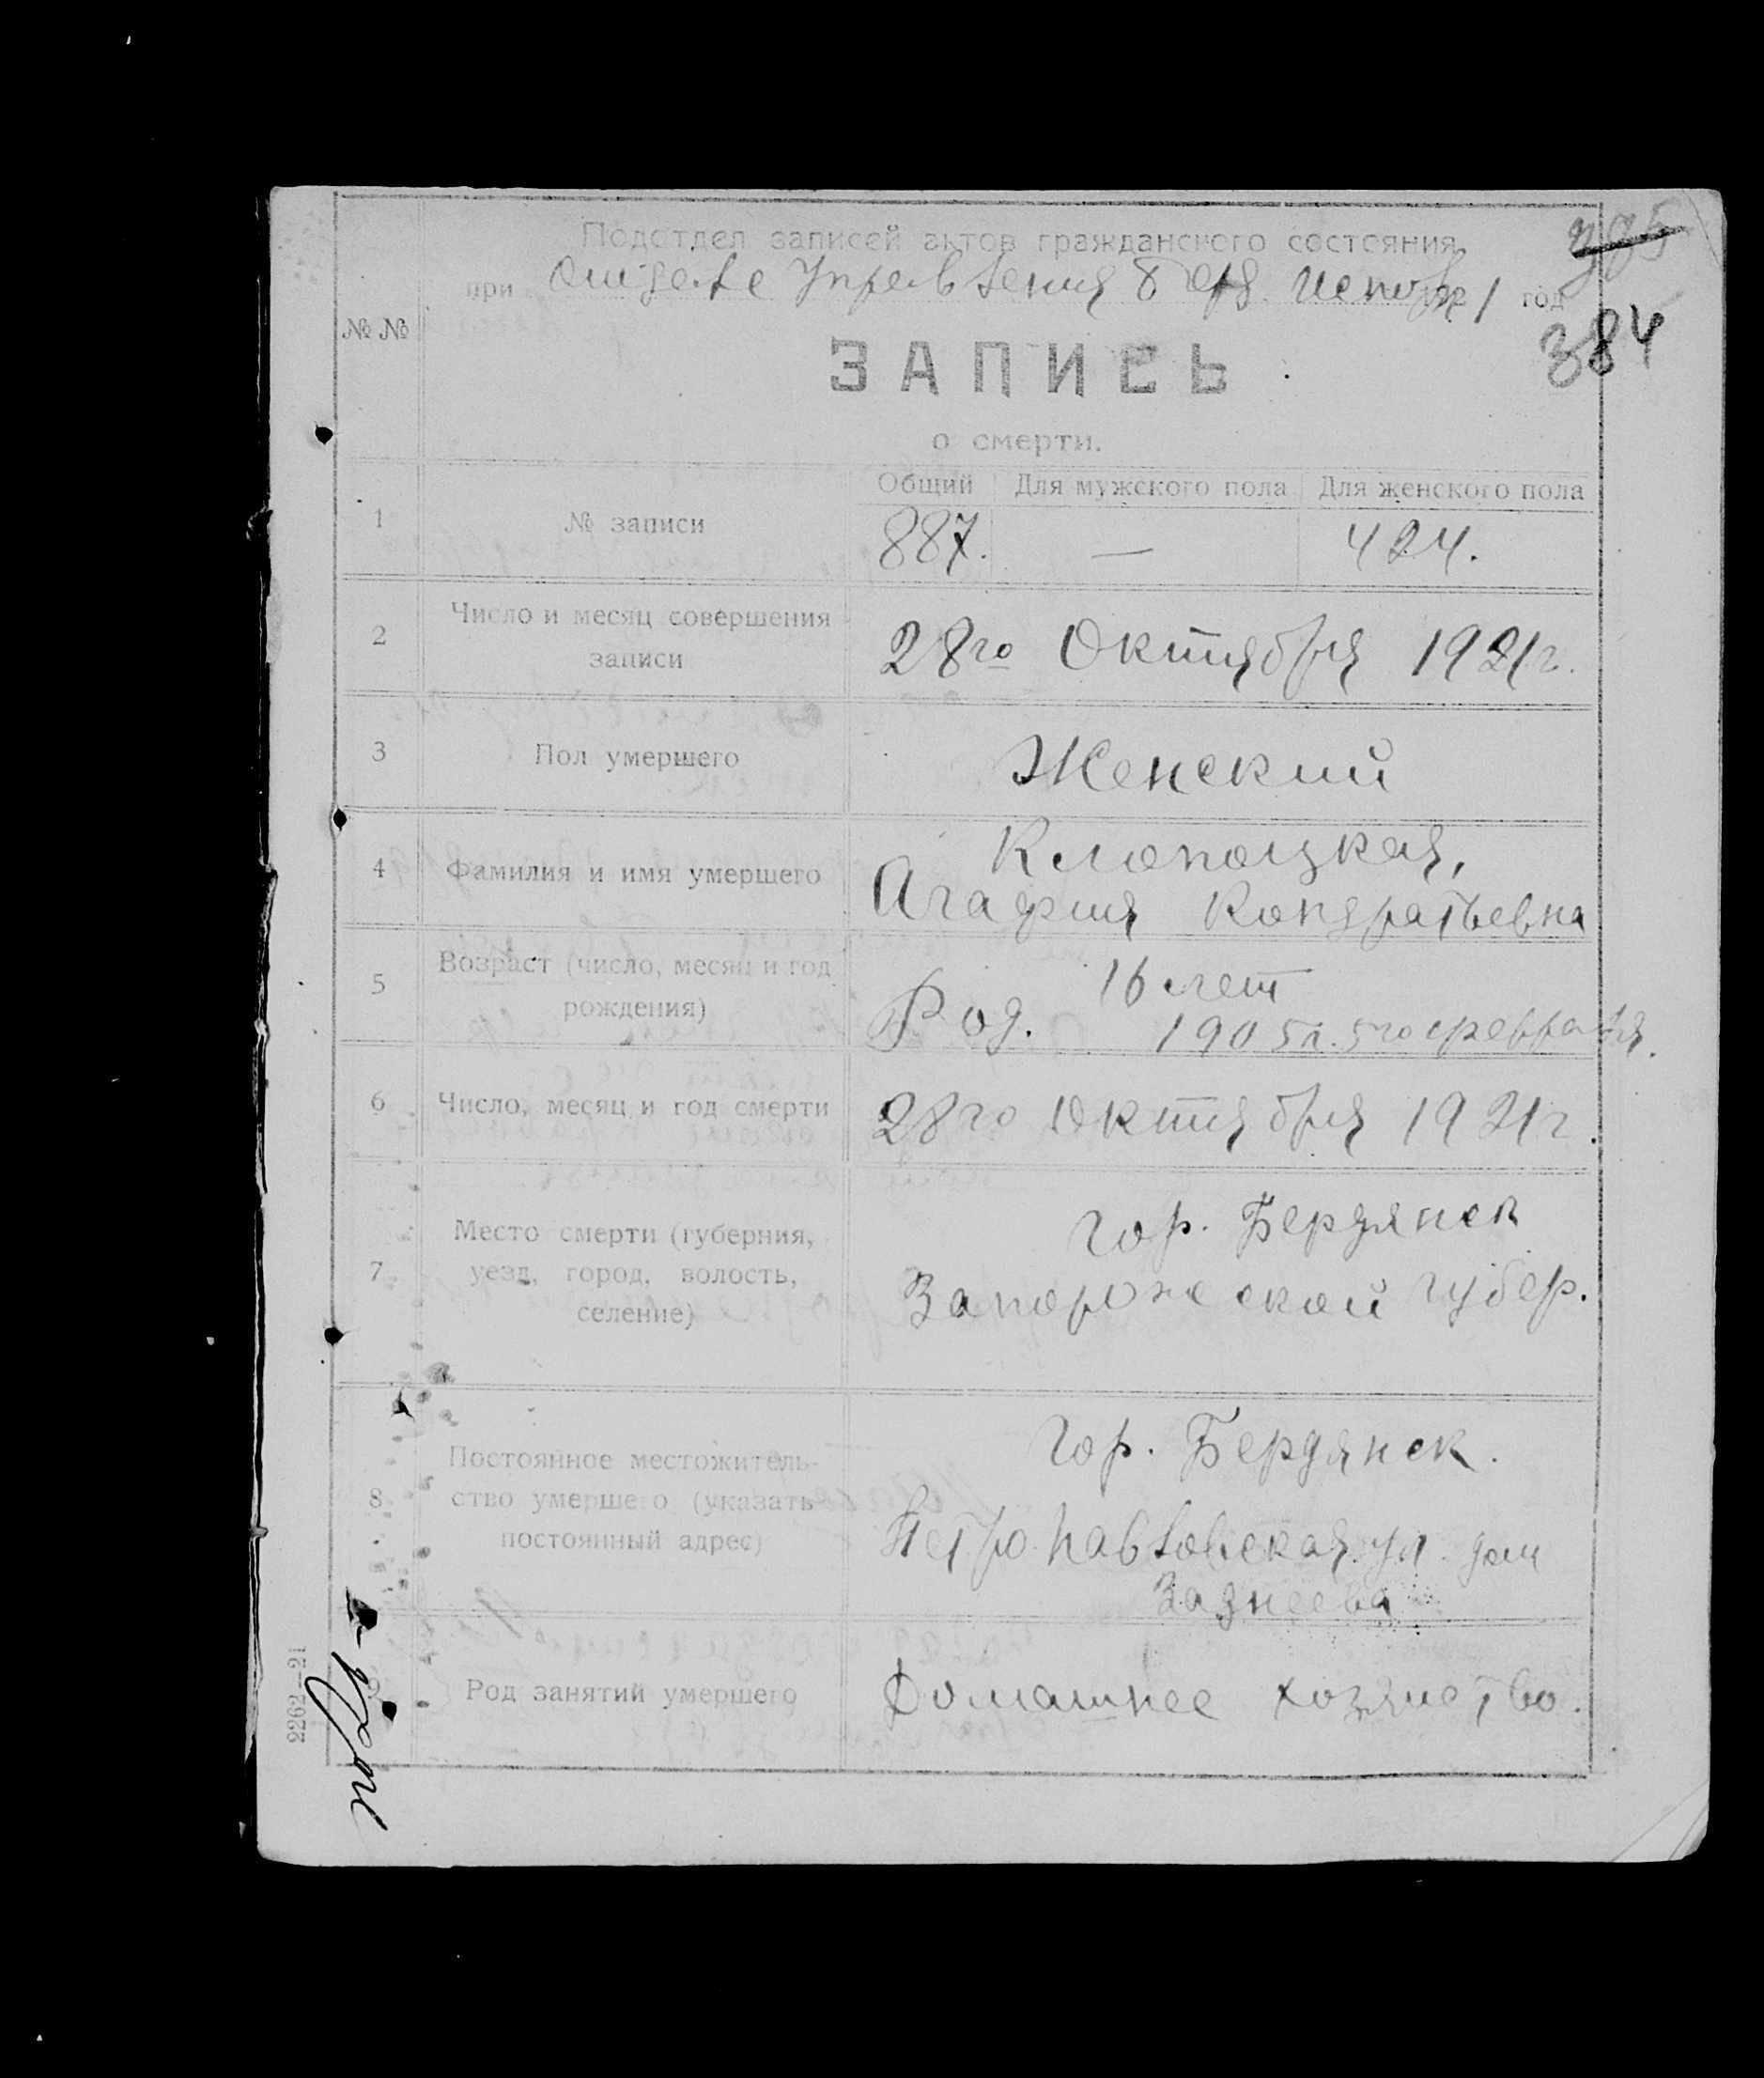 Подотдел записей актов гражданского состояния
при Отделе Управления Берд. Исполк 1921 год
385
384
№ №
ЗАПИСЬ
о смерти.
Общий Для мужского пола Для женского пола
1 № записи 887. — 424.
2 Число и месяц совершения
записи
28го Октября 1921г.
3 Пол умершего Женский
4 Фамилия и имя умершего
Клопоцкая,
Агафия Кондратьевна
5 Возраст (число, месяц и год
рождения)
16 лет
Род. 1905г. 5го февраля.
6 Число, месяц и год смерти 28го Октября 1921г.
7 Место смерти (губерния,
уезд, город, волость,
селение)
Гор. Бердянск
Запорожской губер.
8 Постоянное местожитель-
ство умершего (указать
постоянный адрес)
Гор. Бердянск.
Петропавловская ул. дом
Заднеева
9 Род занятий умершего Домашнее хозяйство.
2262—21